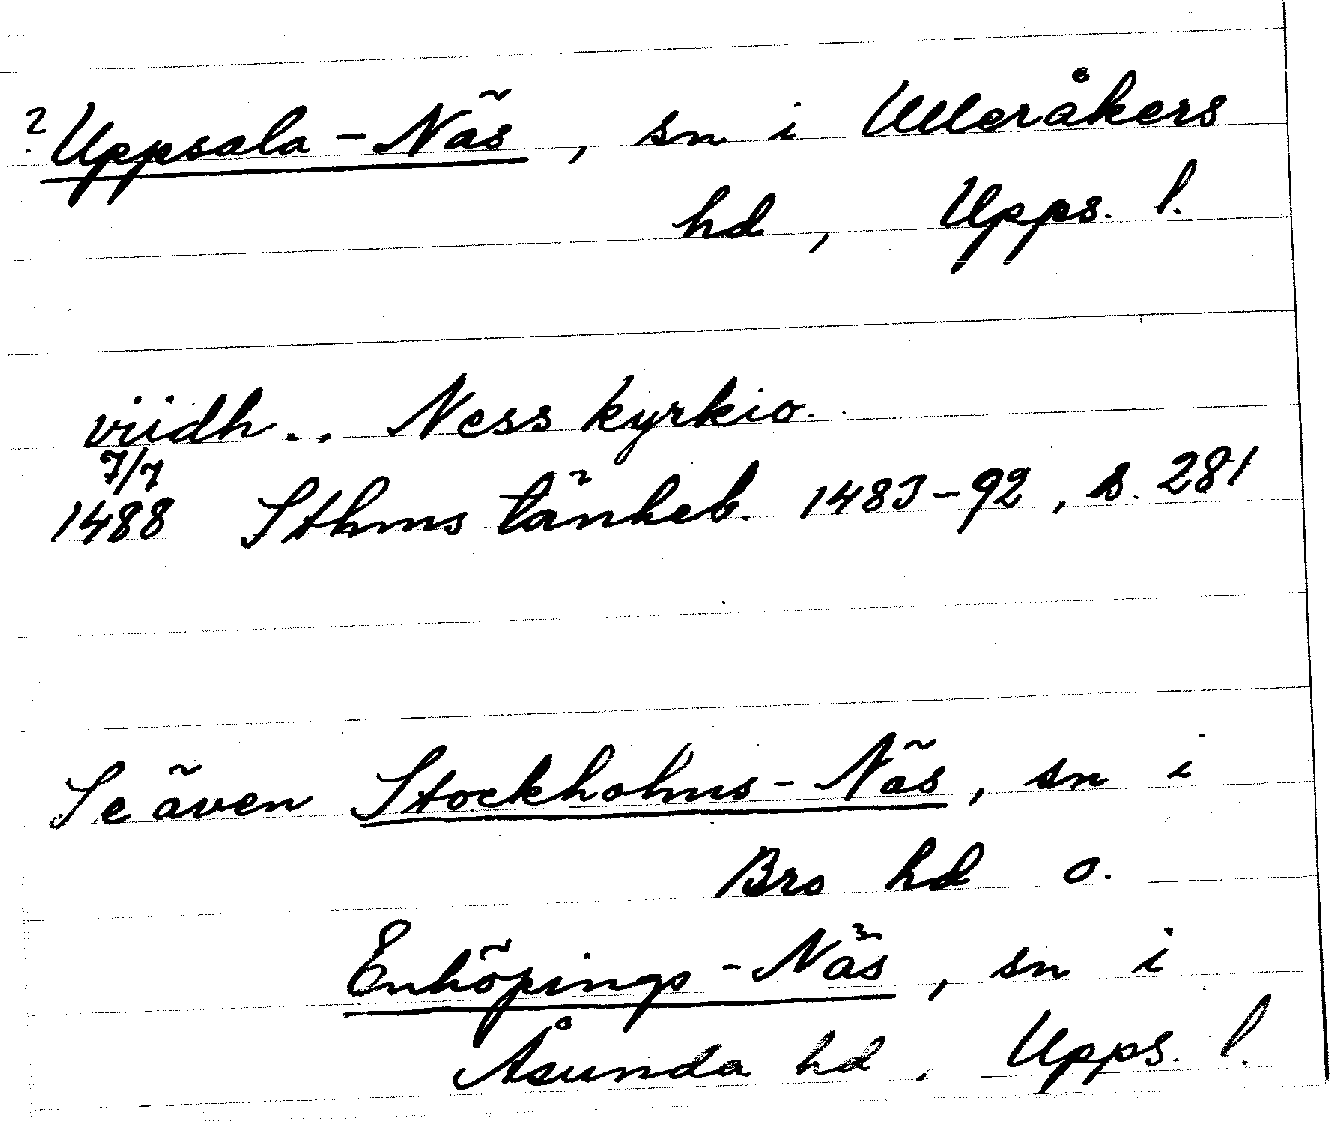 ? Uppsala-Näs, sn i Ulleråkers
hd, Upps. l.
viidh .. Ness kyrkio.
7/7
1488 Sthms tänkeb. 1483-92, s. 281
Se även Stockholms-Näs, sn i
Bro hd o.
Enköpings-Näs, sn i
Åsunda hd, Upps. l.